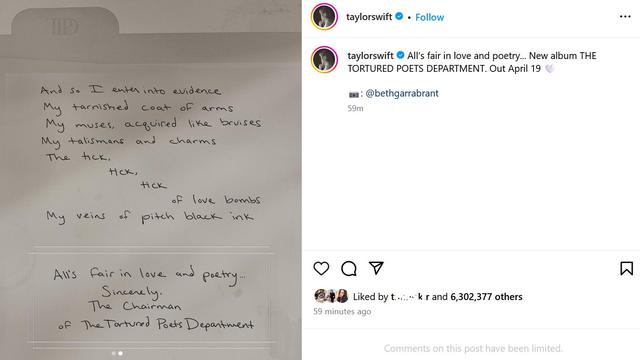 And so I enter into evidence
My tarnished coat of arms
My muses, acquired like bruises
My talismans and charms
The tick,
tick,
tick
of love bombs
My veins of pitch black ink
All's fair in love and poetry...
Sincerely,
The Chairman
of The Tortured Poets Department
taylorswift • Follow
taylorswift All's fair in love and poetry... New album THE
TORTURED POETS DEPARTMENT. Out April 19 🤍
📷: @bethgarrabrant
59m
Liked by and 6,302,377 others
59 minutes ago
Comments on this post have been limited.